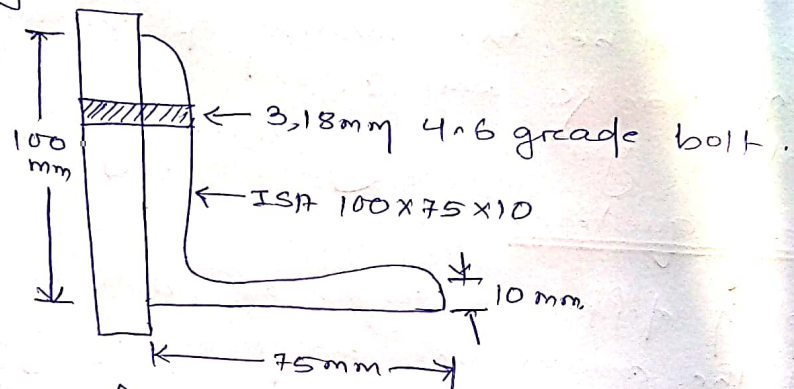 100
mm
← 3,18mm 4.6 grade bolt.
← ISA 100 X 75 X 10
10 mm
75mm